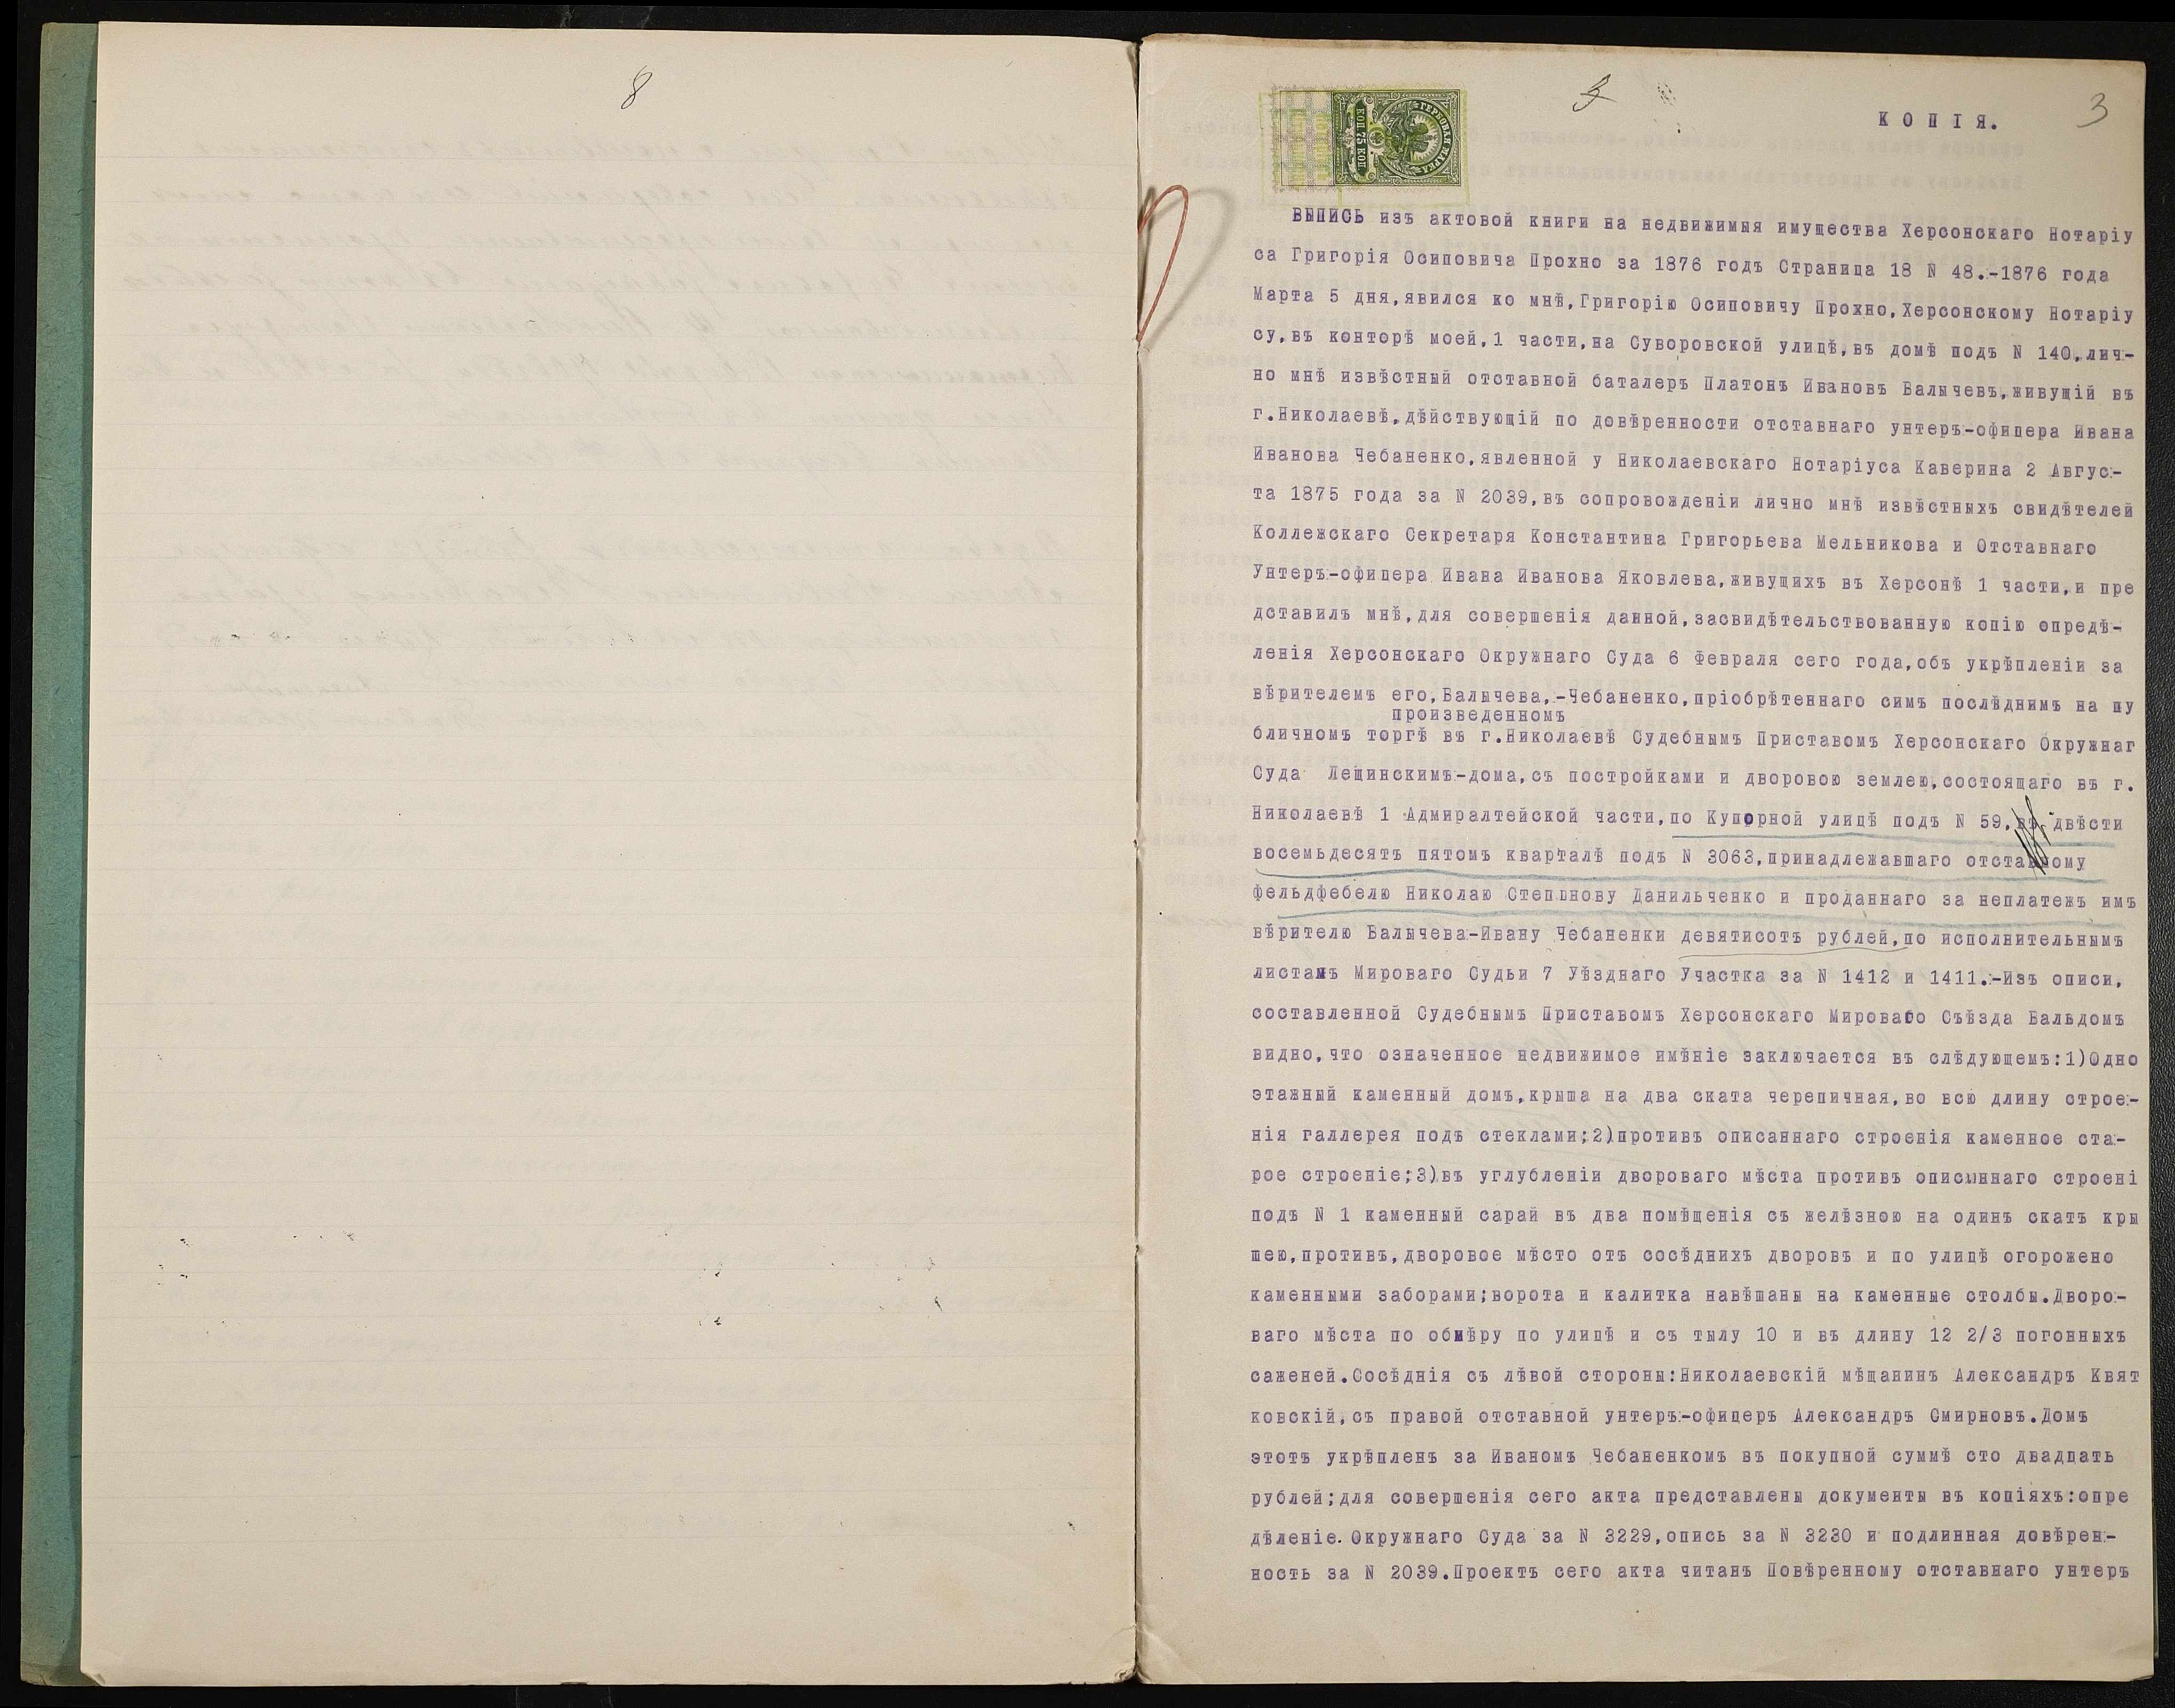 8
3
КОПІЯ.
3
ГЕРБОВАЯ МАРКА
75 КОП
ВЫПИСЬ изъ актовой книги на недвижимыя имущества Херсонскаго Нотаріу
са Григорія Осиповича Прохно за 1876 годъ Страница 18 N 48.-1876 года
Марта 5 дня,явился ко мнѣ,Григорію Осиповичу Прохно,Херсонскому Нотаріу
су,въ конторѣ моей,1 части,на Суворовской улицѣ,въ домѣ подъ N 140,лич-
но мнѣ извѣстный отставной баталеръ Платонъ Ивановъ Балычевъ,живущій въ
г.Николаевѣ,дѣйствующій по довѣренности отставнаго унтеръ-офицера Ивана
Иванова Чебаненко,явленной у Николаевскаго Нотаріуса Каверина 2 Авгус-
та 1875 года за N 2039,въ сопровожденіи лично мнѣ извѣстныхъ свидѣтелей
Коллежскаго Секретаря Константина Григорьева Мельникова и Отставнаго
Унтеръ-офицера Ивана Иванова Яковлева,живущихъ въ Херсонѣ 1 части,и пре
дставилъ мнѣ,для совершенія данной,засвидѣтельствованную копію опредѣ-
ленія Херсонскаго Окружнаго Суда 6 Февраля сего года,объ укрѣпленіи за
вѣрителемъ его,Балычева,-Чебаненко,пріобрѣтеннаго симъ послѣднимъ на пу
произведенномъ
бличномъ торгѣ въ г.Николаевѣ Судебнымъ Приставомъ Херсонскаго Окружнаг
Суда Лещинскимъ-дома,съ постройками и дворовою землею,состоящаго въ г.
Николаевѣ 1 Адмиралтейской части,по Купорной улицѣ подъ N 59,въ двѣсти
восемьдесятъ пятомъ кварталѣ подъ N 3063,принадлежавшаго отставному
фельдфебелю Николаю Степанову Данильченко и проданнаго за неплатежъ имъ
вѣрителю Балычева-Ивану Чебаненки девятисотъ рублей,по исполнительнымъ
листамъ Мироваго Судьи 7 Уѣзднаго Участка за N 1412 и 1411.-Изъ описи,
составленной Судебнымъ Приставомъ Херсонскаго Мироваго Съѣзда Вальдомъ
видно,что означенное недвижимое имѣніе заключается въ слѣдующемъ:1)Одно
этажный каменный домъ,крыша на два ската черепичная,во всю длину строе-
нія галлерея подъ стеклами;2)противъ описаннаго строенія каменное ста-
рое строеніе;3)въ углубленіи двороваго мѣста противъ описаннаго строені
подъ N 1 каменный сарай въ два помѣщенія съ желѣзною на одинъ скатъ кры
шею,противъ,дворовое мѣсто отъ сосѣднихъ дворовъ и по улицѣ огорожено
каменными заборами;ворота и калитка навѣшаны на каменные столбы.Дворо-
ваго мѣста по обмѣру по улицѣ и съ тылу 10 и въ длину 12 2/3 погонныхъ
саженей.Сосѣднія съ лѣвой стороны:Николаевскій мѣщанинъ Александръ Квят
ковскій,съ правой отставной унтеръ-офицеръ Александръ Смирновъ.Домъ
этотъ укрѣпленъ за Иваномъ Чебаненкомъ въ покупной суммѣ сто двадцать
рублей;для совершенія сего акта представлены документы въ копіяхъ:опре
дѣленіе.Окружнаго Суда за N 3229,опись за N 3230 и подлинная довѣрен-
ность за N 2039.Проектъ сего акта читанъ Повѣренному отставнаго унтеръ